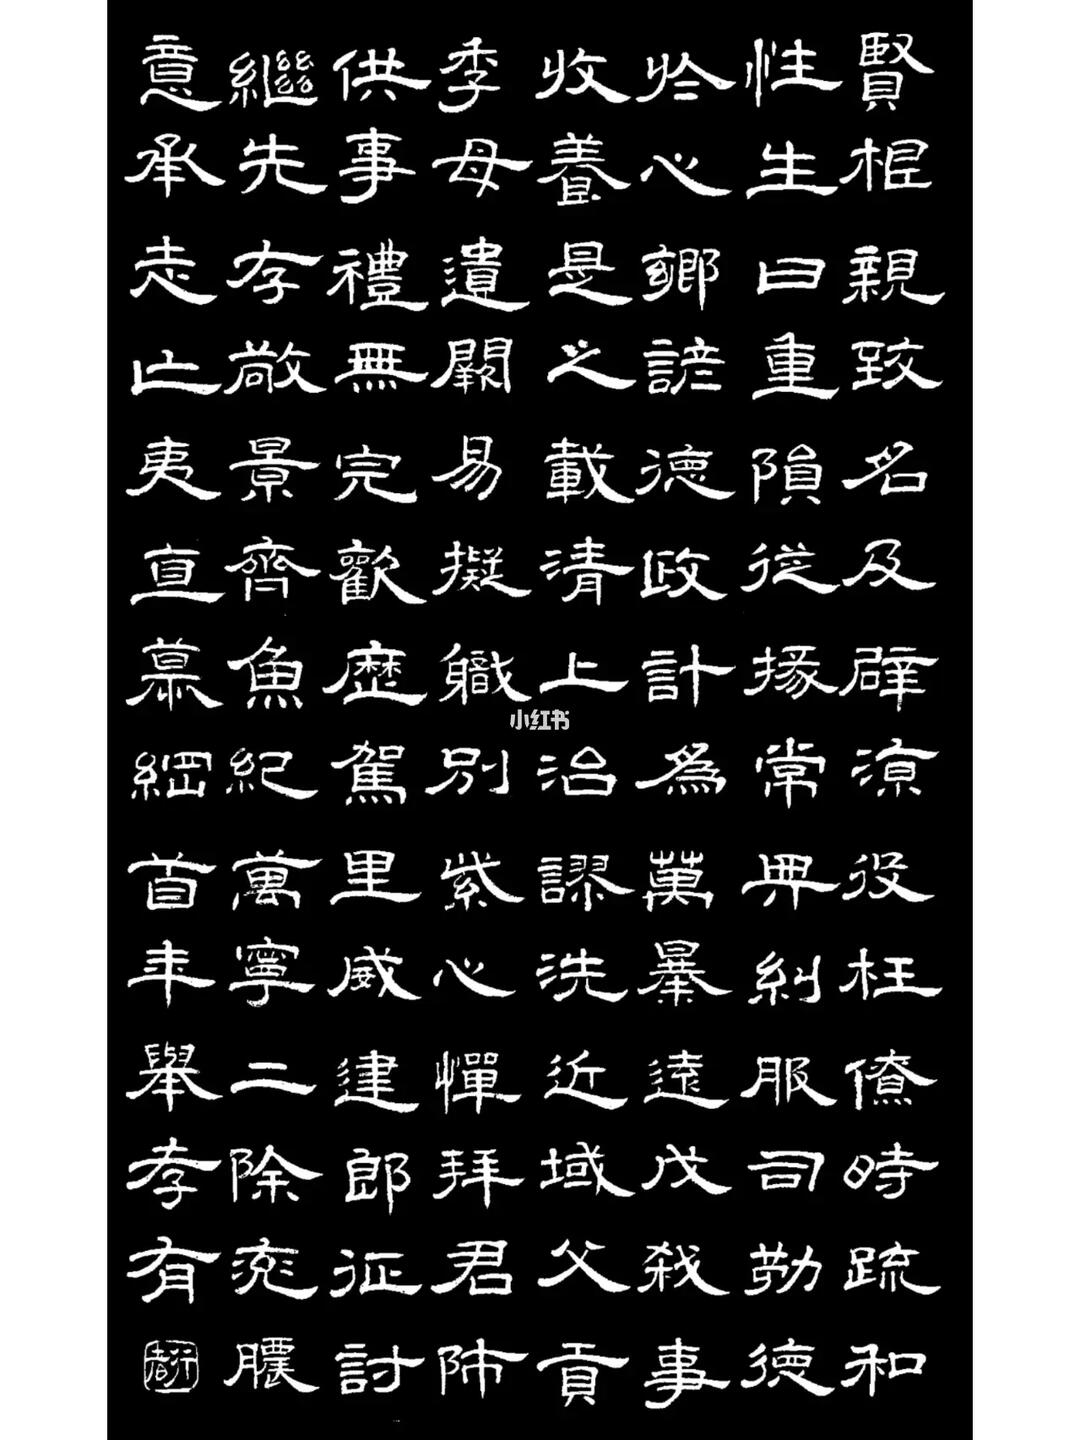 賢榥親致名及辟涼役枉僚時疏和
性生曰重隕從掾常典糾服司勑德
於心鄉諺德政計為萬暴遠戊殺事
收養是之載清上治謬洗近域父貢
季母遺闕易擬職別紫心憚拜君师
供事禮無完歡歷駕里威建郎征討
繼先存敞景齊魚紀萬寧二除
意承志止夷直慕綱首年舉孝有
小红书